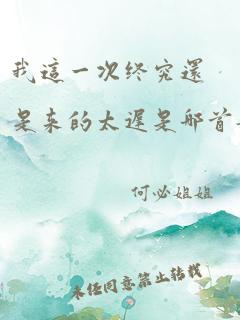 我這一次终究還
是来的太遲是那首
何必姐姐
未经同意禁止转载